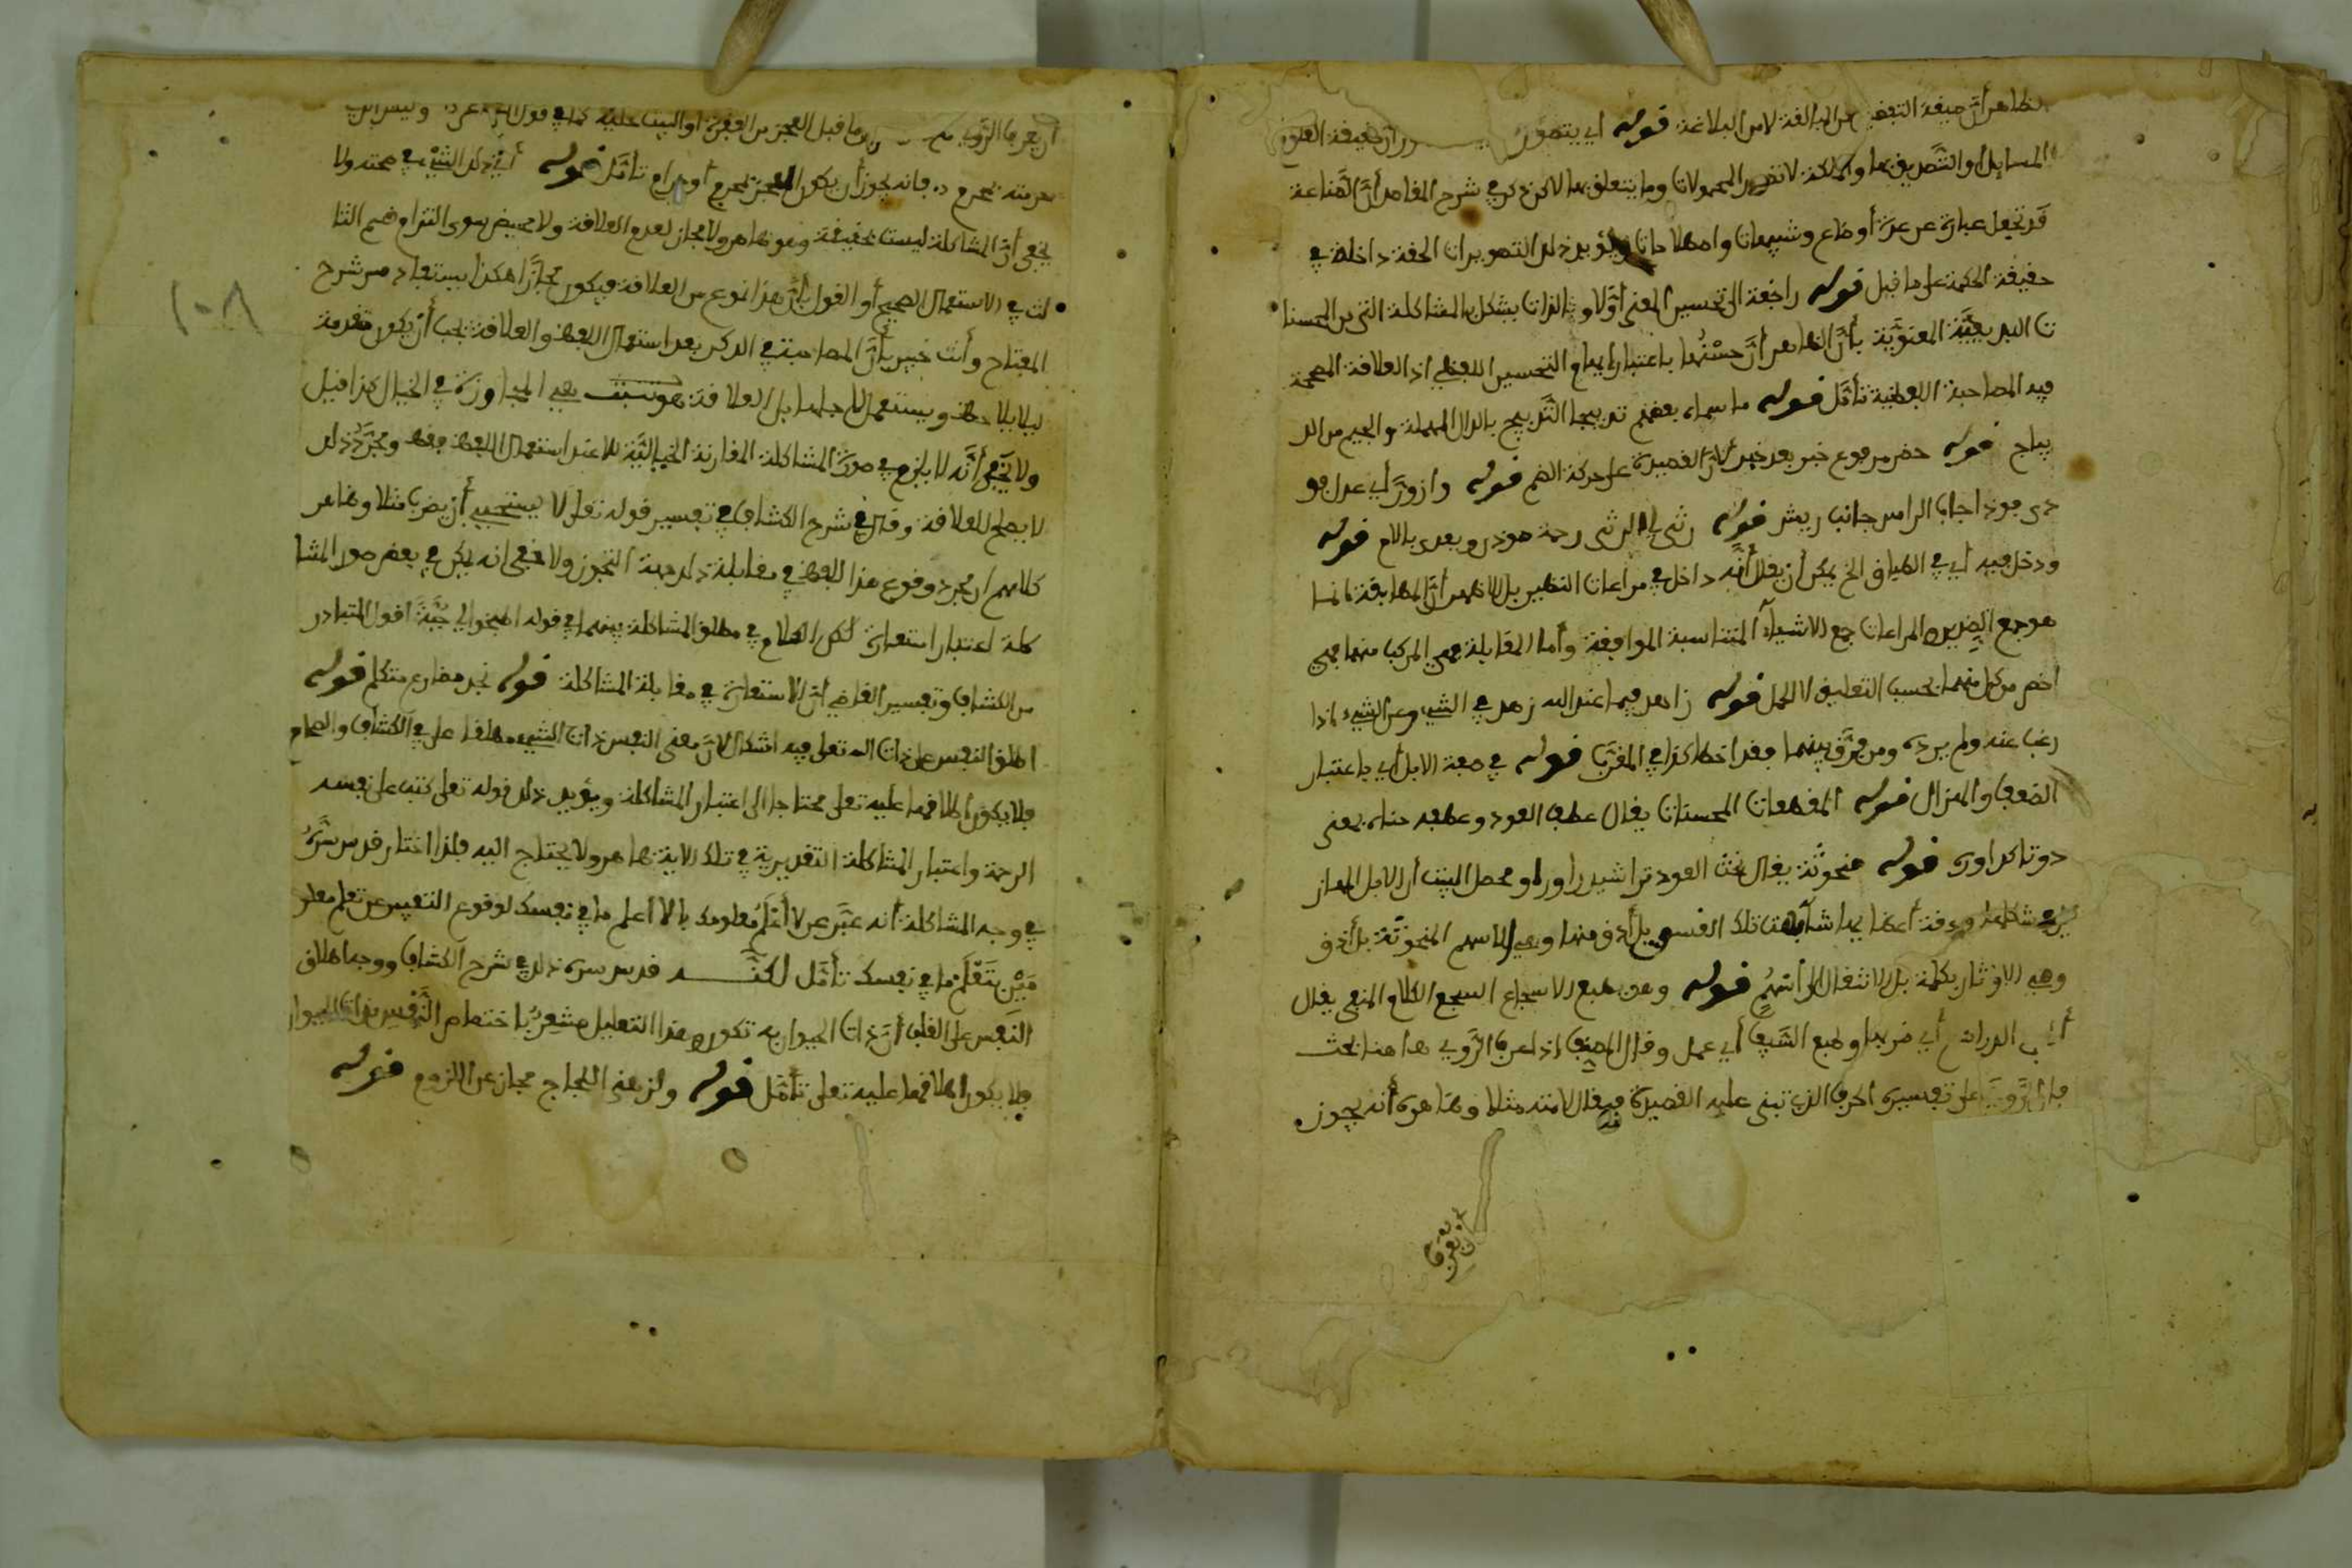 الظاهر أن صيغة التفضيل من المبالغة لا من البلاغة قوله أي يتصور حقيقة
المسايل أو التصديق بها والملكة لا تصور المحمولات وما يتعلق بها لاكن ذكر في شرح المفاصد أن الصناعة
قد تجعل عبارة عن عدة أوضاع وتنبيهات واصطلاحات ويؤيد ذلك التصويرات الحقة داخلة في
حقيقة الحكمة على ما قيل قوله راجعة الى تحسين المعنى أولا وبالذات يشكل بالمشاكلة التي من المحسنا
ت البديعية المعنوية بأن الظاهر أن حسنها باعتبار إيهام التحسين اللفظي اذ العلاقة المصححة
فيه المصاحبة اللفظية تأمل قوله ما سماه بعضهم تدبيجا التدبيج بالدال المهملة والجيم من الد
يباج قوله خضر مرفوع خبر بعد خبر لأن القصيدة على حركة الضم قوله وازور أي عدل مو
قوله رثى له الرثى رحمة نمودن ويعدى باللام قوله
ودخل فيه أي في الطباق الخ يمكن أن يقال أنه داخل في مراعات النظير بل الاظهر أن المطابقة لما نما
هو جمع الضدين والمراعات جمع الاشياء المتناسبة الموافقة وأما المقابلة فهي المركب منهما فهي
اخص من كل منهما بحسب التعليق لا الحمل قوله زاهد فيما عند الله زهد في الشيء وعن الشيء اذا
رغب عنه ولم يرده ومن فرق بينهما فقد اخطا كذا في المغرب قوله في صفة الابل أي باعتبار
الضعف والهزال قوله المنعطفات المحنيات يقال عطف العود وعطفه حناه بمعنى
دوتا كر اورى قوله منحوتة يقال نحت العود تراشيد اورا ومحصل البيت أن الابل المهاز
يل في شكلها ودقة أعضايها شابهت تلك القسي بل أدق منها وهي الاسهم المنحوتة بل أدق
وهي الاوتار بكلمة بل للانتقال الى أسهم قوله وعن طبع الاسجاع السجع الكلام المقفى يقال
الدراهم أي ضربها وطبع السيف أي عمل وقال المصنف اذا عرف الروي هاهنا بحث
فإن الروي على تفسيره الحرف الذي تبنى عليه القصيدة فيقال لامية مثلا وظاهره أنه يجوز
أن يعرف
أن يعرف الروي ما قبل العجز من الفقرة أو البيت عليه كما في قول
بحرمته بحرم فإنه يجوز أن يكون العجز بمحرم أو حرام تأمل قوله أي ذكر الشيء في صحته ولا
يخفى أن المشاكلة ليست بحقيقة وهو ظاهر ولا مجاز لعدم العلاقة ولا محيص سوى التزام قسم الثا
لث في الاستعمال الصحيح أو القول بأن هذا نوع من العلاقة فيكون مجازا هكذا يستفاد من شرح
المفتاح وأنت خبير بأن المصاحبة في الذكر بعد استعمال اللفظ والعلاقة يجب أن يكون متقدمة
ليلا يلاحظ ويستعمل لأجلها بل العلاقة هي المجاورة في الخيال هذا قيل
ولا يخفى أنه لا يلزم في صورة المشاكلة المقارنة الخيالية الا عند استعمال اللفظ فقط ومجرد ذلك
لا يصلح للعلاقة وقال في شرح الكشاف في تفسير قوله تعلى لا يستحيي أن يضرب مثلا وظاهر
كلامهم أن مجرد وقوع هذا اللفظ في مقابلة ذلك جهة التجوز ولا خفى انه يمكن في بعض صور المشا
كلة اعتبار استعارة لكن الكلام في مطلق المشاكلة بينهما في قوله اطبخوا لي جبة اقول المتبادر
من الكشاف وتفسير القاضي أن الاستعارة في مقابلة المشاكلة قوله نجد مضارع متكلم قوله
اطلق النفس على ذات الله تعلى فيه اشكال لأن معنى النفس ذات الشيء مطلقا على في الكشاف والصحاح
فلا يكون اطلاقها عليه تعلى محتاجا الى اعتبار المشاكلة ويؤيد ذلك قوله تعلى كتب على نفسه
الرحمة واعتبار المشاكلة التقديرية في تلك الاية ظاهر ولا يحتاج اليه فلذا اختار قدس سره
في وجه المشاكلة أنه عبر عن لا أعلم معلومك بلا أعلم ما في نفسك لوقوع التعبير عن تعلم معلو
مي بتعلم ما في نفسك تأمل لكنه قدس سره ذكر في شرح الكشاف ووجه اطلاق
النفس على القلب أن ذات الحيوان به تكون وهذا التعليل مشعر باختصاص النفس بذات الحيوان
فلا يكون اطلاقها عليه تعلى تأمل قوله ولزمني اللجاج مجاز عن اللزوم قوله
١٠٨